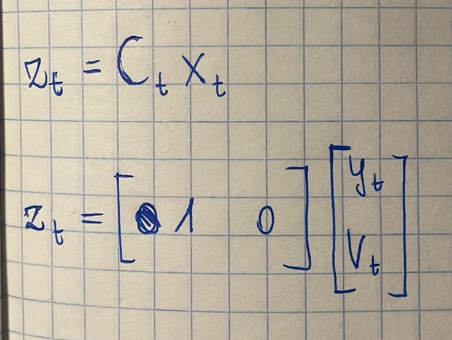 z_t = C_t x_t
z_t = [ 1 0 ] [ y_t
V_t ]